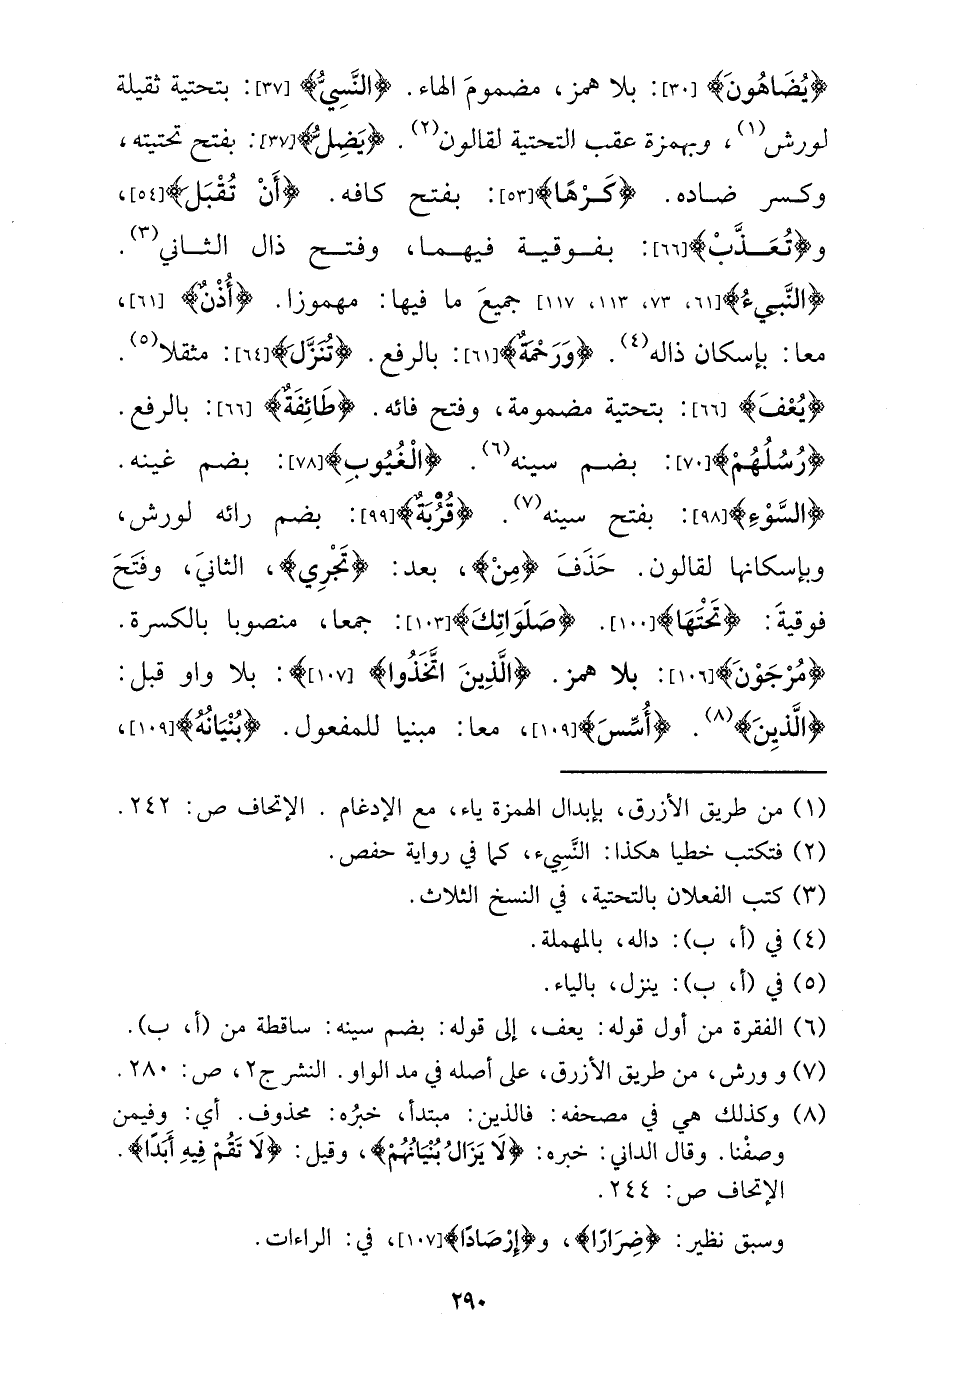 ﴿يُضَاهُونَ﴾ [٣٠]: بلا همز، مضمومَ الهاء. ﴿النَّسِيُّ﴾ [٣٧]: بتحتية ثقيلة
لورش(١)، وبهمزة عقب التحتية لقالون(٢). ﴿يَضِلُّ﴾[٣٧]: بفتح تحتيته،
وكسر ضاده. ﴿كَرْهًا﴾[٥٣]: بفتح كافه. ﴿أَنْ تُقْبَلَ﴾[٥٤]،
و﴿تُعَذَّبْ﴾[٦٦]: بفوقية فيهما، وفتح ذال الثاني(٣).
﴿النَّبِيءُ﴾[٦١، ٧٣، ١١٣، ١١٧] جميعَ ما فيها: مهموزا. ﴿أُذْنٌ﴾ [٦١]،
معا: بإسكان ذاله(٤). ﴿وَرَحْمَةٌ﴾[٦١]: بالرفع. ﴿تُنَزَّلَ﴾[٦٤]: مثقلا(٥).
﴿يُعْفَ﴾ [٦٦]: بتحتية مضمومة، وفتح فائه. ﴿طَائِفَةٌ﴾ [٦٦]: بالرفع.
﴿رُسُلُهُمْ﴾[٧٠]: بضم سينه(٦). ﴿الْغُيُوبِ﴾[٧٨]: بضم غينه.
﴿السَّوْءِ﴾[٩٨]: بفتح سينه(٧). ﴿قُرُبَةٌ﴾[٩٩]: بضم رائه لورش،
وبإسكانها لقالون. حَذَفَ ﴿مِنْ﴾، بعد: ﴿تَجْرِي﴾، الثانيَ، وفتَحَ
فوقيةَ: ﴿تَحْتَهَا﴾[١٠٠]. ﴿صَلَوَاتِكَ﴾[١٠٣]: جمعا، منصوبا بالكسرة.
﴿مُرْجَوْنَ﴾[١٠٦]: بلا همز. ﴿الَّذِينَ اتَّخَذُوا﴾ [١٠٧]﴾: بلا واو قبل:
﴿الَّذِينَ﴾(٨). ﴿أُسِّسَ﴾[١٠٩]، معا: مبنيا للمفعول. ﴿بُنْيَانُهُ﴾[١٠٩]،
(١) من طريق الأزرق، بإبدال الهمزة ياء، مع الإدغام . الإتحاف ص: ٢٤٢.
(٢) فتكتب خطيا هكذا: النَّسِيء، كما في رواية حفص.
(٣) كتب الفعلان بالتحتية، في النسخ الثلاث.
(٤) في (أ، ب): داله، بالمهملة.
(٥) في (أ، ب): ينزل، بالياء.
(٦) الفقرة من أول قوله: يعف، إلى قوله: بضم سينه: ساقطة من (أ، ب).
(٧) و ورش، من طريق الأزرق، على أصله في مد الواو. النشر ج٢، ص: ٢٨٠.
(٨) وكذلك هي في مصحفه: فالذين: مبتدأ، خبرُه: محذوف. أي: وفيمن
وصفْنا. وقال الداني: خبره: ﴿لَا يَزَالُ بُنْيَانُهُمْ﴾، وقيل: ﴿لَا تَقُمْ فِيهِ أَبَدًا﴾.
الإتحاف ص: ٢٤٤.
وسبق نظير: ﴿ضِرَارًا﴾، و﴿إِرْصَادًا﴾[١٠٧]، في: الراءات.
٢٩٠